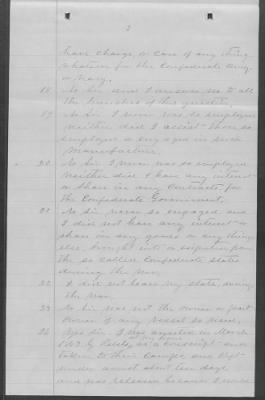 2
have charge, or care of any thing
whatever for the Confederate army
or Navy.
18. No Sir and I answer no to all
the branches of this question.
19. No Sir I never was so employed
neither did I assist those so
employed or engaged in such
Manufacture.
20. No Sir I never was so employed
neither did I have any interest
or share in any Contracts for
the Confederate Government.
21. No Sir never so engaged and
I did not have any interest or
share in any goods or any thing
else brought into or exported from
the so called Confederate states
during the war.
22. I did not leave my state, during
the war.
23. No Sir was not the owner or part
owner of any vessel so used.
24. Yes Sir. I was arrested in March
186 by Rebels, as a conscript and
taken to their Camps, and kept
under arrest about ten days
and was released because I